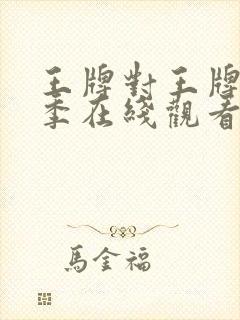 王牌對王牌
季在綫觀看
馬金福